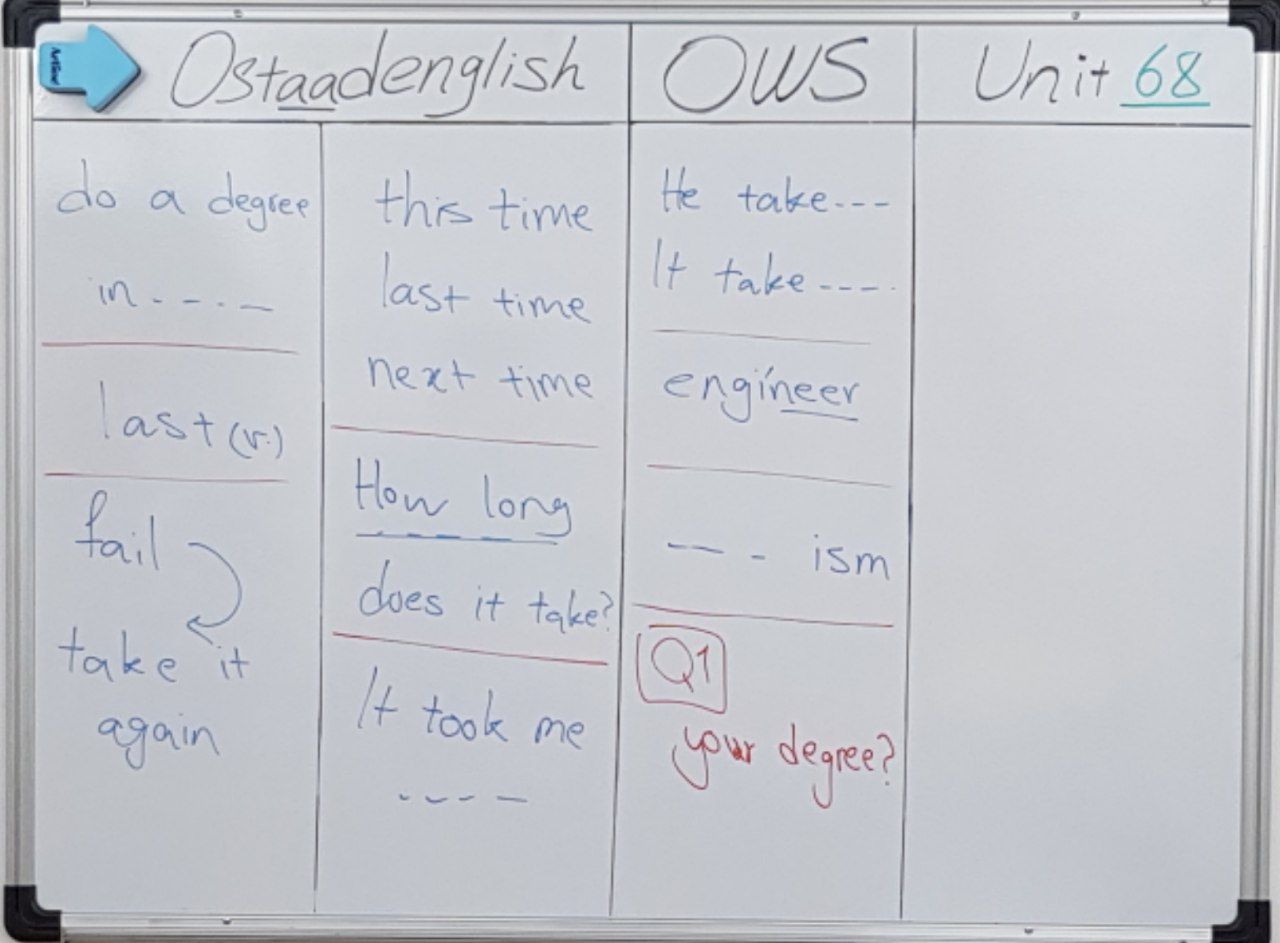 Artline
Ostaadenglish
OWS
Unit 68
do a degree
in - - - -
last (v.)
fail
take it
again
this time
last time
next time
How long
does it take?
It took me
- - - -
He take---
It take----
engineer
--- ism
Q1
your degree?